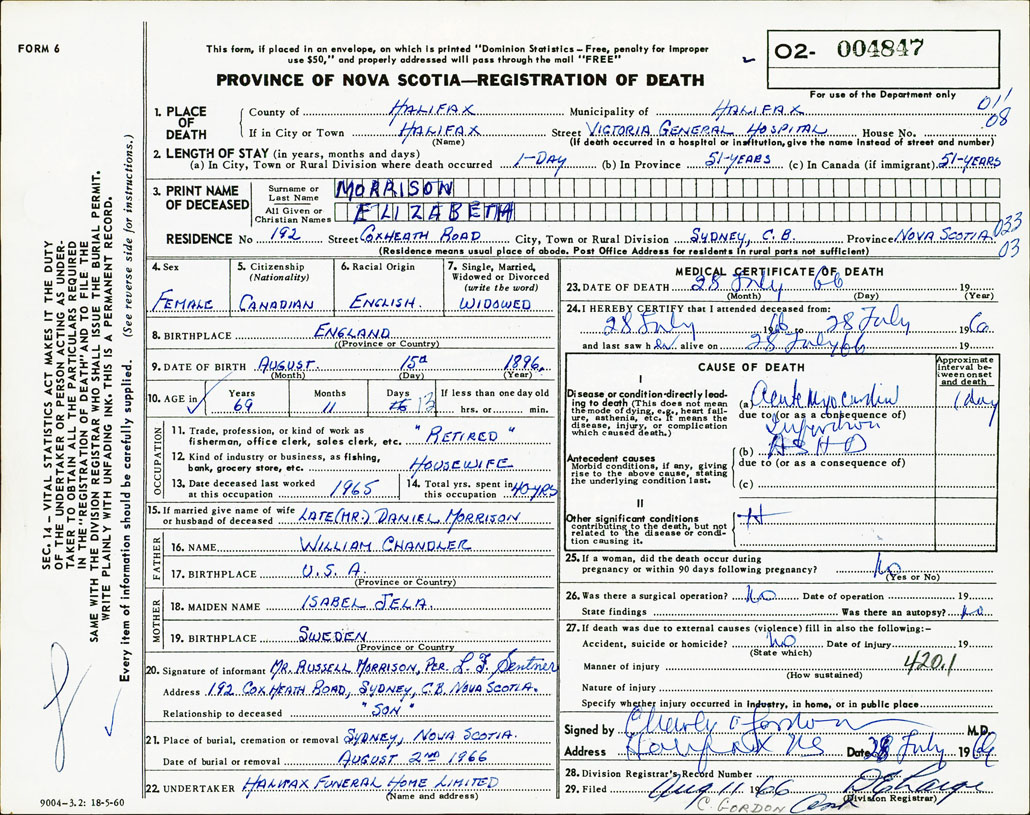 FORM 6
This form, if placed in an envelope, on which is printed "Dominion Statistics – Free, penalty for improper
use $50," and properly addressed will pass through the mail "FREE"
O2- 004847
PROVINCE OF NOVA SCOTIA—REGISTRATION OF DEATH
For use of the Department only
011
08
1. PLACE OF DEATH
County of HALIFAX Municipality of HALIFAX
If in City or Town HALIFAX Street VICTORIA GENERAL HOSPITAL House No.
(Name) (If death occurred in a hospital or institution, give the name instead of street and number)
2. LENGTH OF STAY (in years, months and days)
(a) In City, Town or Rural Division where death occurred 1-DAY (b) In Province 51-YEARS (c) In Canada (if immigrant) 51-YEARS
3. PRINT NAME OF DECEASED
Surname or Last Name MORRISON
All Given or Christian Names ELIZABETH
RESIDENCE No 192 Street COXHEATH ROAD City, Town or Rural Division SYDNEY, C.B. Province NOVA SCOTIA
033
03
(Residence means usual place of abode. Post Office Address for residents in rural parts not sufficient)
4. Sex
FEMALE
5. Citizenship
(Nationality)
CANADIAN
6. Racial Origin
ENGLISH.
7. Single, Married,
Widowed or Divorced
(write the word)
WIDOWED
8. BIRTHPLACE ENGLAND
(Province or Country)
9. DATE OF BIRTH AUGUST 15th 1896.
(Month) (Day) (Year)
10. AGE in Years Months Days If less than one day old
69 11 13 hrs. or min.
OCCUPATION
11. Trade, profession, or kind of work as
fisherman, office clerk, sales clerk, etc. "RETIRED"
12. Kind of industry or business, as fishing,
bank, grocery store, etc. HOUSEWIFE
13. Date deceased last worked
at this occupation 1965
14. Total yrs. spent in
this occupation 40 YRS
15. If married give name of wife
or husband of deceased LATE (MR.) DANIEL MORRISON
FATHER
16. NAME WILLIAM CHANDLER
17. BIRTHPLACE U.S.A.
(Province or Country)
MOTHER
18. MAIDEN NAME ISABEL JELA.
19. BIRTHPLACE SWEDEN
(Province or Country)
20. Signature of informant MR. RUSSELL MORRISON, PER. L. F. Sentner
Address 192 COXHEATH ROAD, SYDNEY, C.B. NOVA SCOTIA.
Relationship to deceased "SON"
21. Place of burial, cremation or removal SYDNEY, NOVA SCOTIA.
Date of burial or removal AUGUST 2ND 1966
22. UNDERTAKER HALIFAX FUNERAL HOME LIMITED
(Name and address)
MEDICAL CERTIFICATE OF DEATH
23. DATE OF DEATH 28 July 66 19
(Month) (Day) (Year)
24. I HEREBY CERTIFY that I attended deceased from:
28 July 1966 to 28 July 19 66
and last saw her alive on 28 July 66 19
CAUSE OF DEATH
Approximate interval between onset and death
I
Disease or condition directly leading to death (This does not mean the mode of dying, e.g., heart failure, asthenia, etc. It means the disease, injury, or complication which caused death.)
(a) Acute Myocardial 1 day
due to (or as a consequence of)
Infarction
Antecedent causes
Morbid conditions, if any, giving rise to the above cause, stating the underlying condition last.
(b) ASHD
due to (or as a consequence of)
(c)
II
Other significant conditions contributing to the death, but not related to the disease or condition causing it.
25. If a woman, did the death occur during
pregnancy or within 90 days following pregnancy? No
(Yes or No)
26. Was there a surgical operation? No Date of operation 19
State findings Was there an autopsy? No
27. If death was due to external causes (violence) fill in also the following:–
Accident, suicide or homicide? No Date of injury 19
(State which)
Manner of injury 420.1
(How sustained)
Nature of injury
Specify whether injury occurred in Industry, in home, or in public place
Signed by M.D.
Address Halifax NS Date 28 July 1966
28. Division Registrar's Record Number
29. Filed Aug 11 1966
(Division Registrar)
C. GORDON
SEC. 14 – VITAL STATISTICS ACT MAKES IT THE DUTY
OF THE UNDERTAKER OR PERSON ACTING AS UNDER-
TAKER TO OBTAIN ALL THE PARTICULARS REQUIRED
IN THE "REGISTRATION OF DEATH" AND TO FILE THE
SAME WITH THE DIVISION REGISTRAR WHO SHALL ISSUE THE BURIAL PERMIT.
WRITE PLAINLY WITH UNFADING INK. THIS IS A PERMANENT RECORD.
Every item of information should be carefully supplied. (See reverse side for instructions.)
9004-3.2: 18-5-60